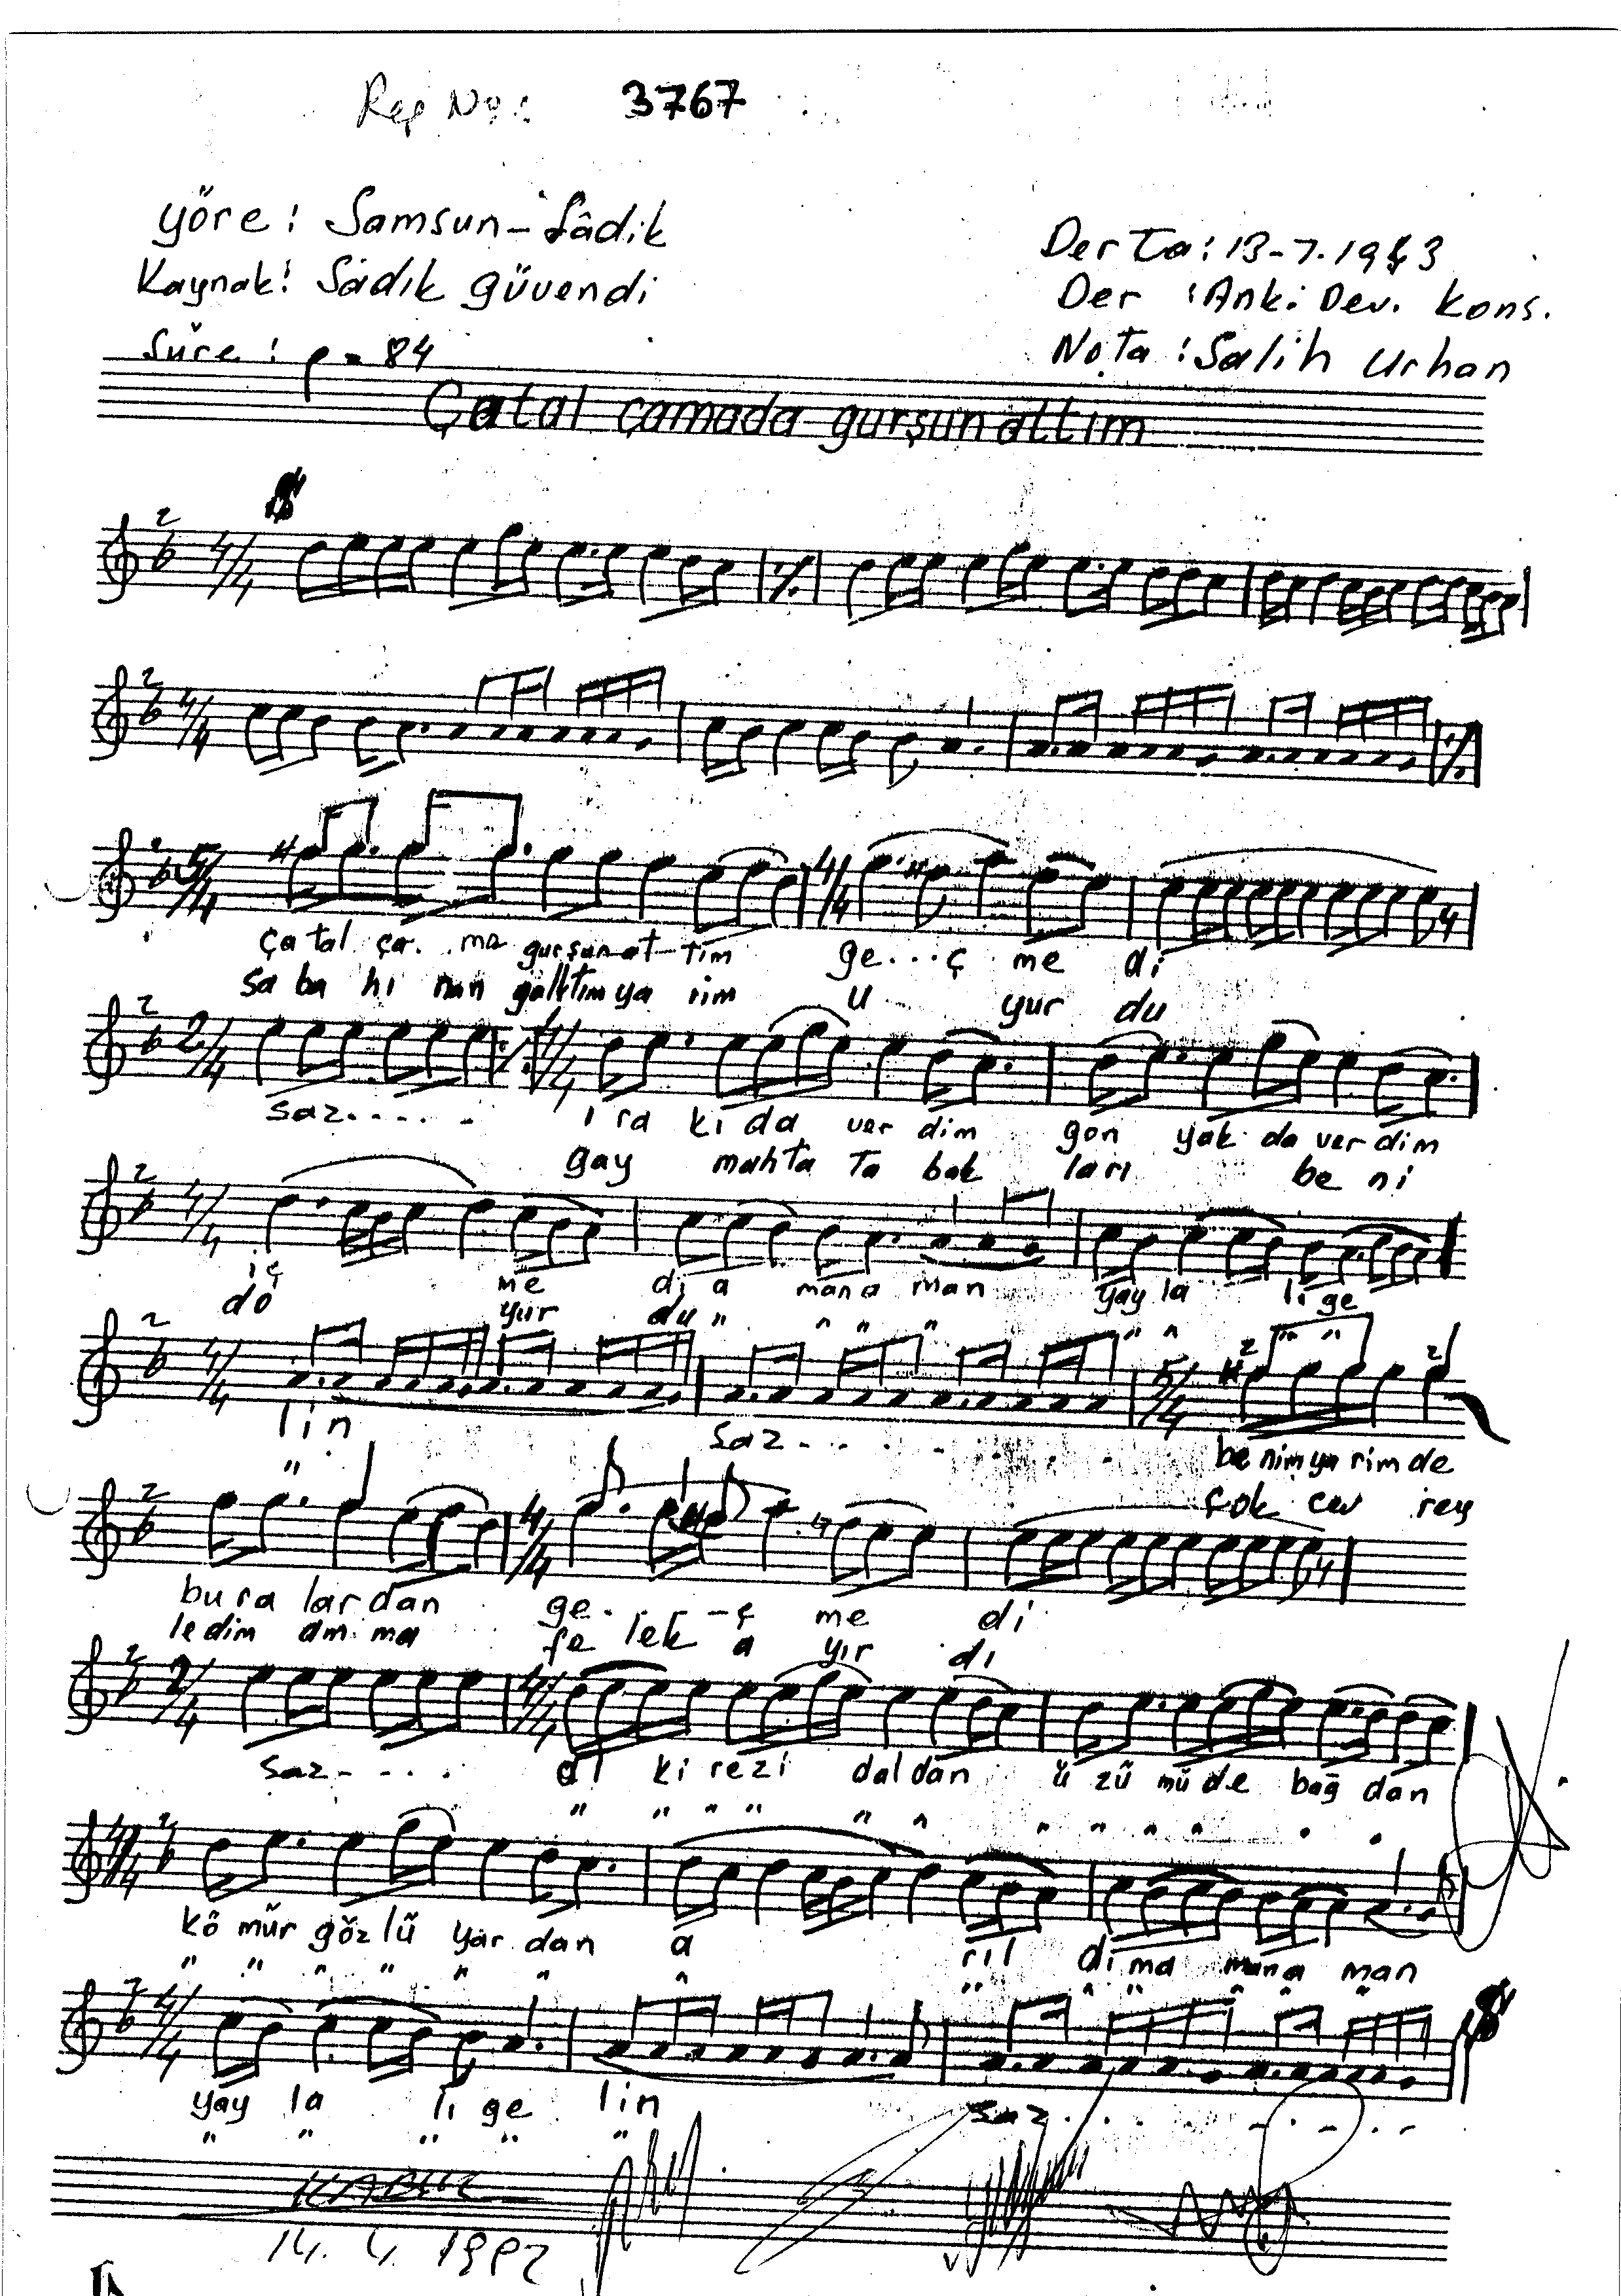 Rep No: 3767
yöre: Samsun-Lâdik
Kaynak: Sâdık güvendi
Süre: = 84
Der Ta: 13-7-1943
Der : Ank. Dev. Kons.
Nota : Salih Urhan
Çatal çamada gurşun attım
Ça tal ça. ma gurşun at tım ge...ç me di
sa ba hı nan galktım ya rim u yur du
saz..... ı ra kı da ver dim gon yak da ver dim
gay mahta ta bak ları be ni
iç me di a man a man yay la lı ge
do yur du " " " " " " " "
lin saz.... be nim ya rim de
" çok cev rey
bu ra lar dan ge.. -ç me di
ledim am ma fe lek a yır dı
saz-.... al ki rezi dal dan ü zü mü de bağ dan
" " " " " " " " " " " "
kö mür göz lü yar dan a rıl dı ma man a man
" " " " " " " " " " " " "
yay la lı ge lin saz.......
" " " " "
KABUL
14. 4. 1982